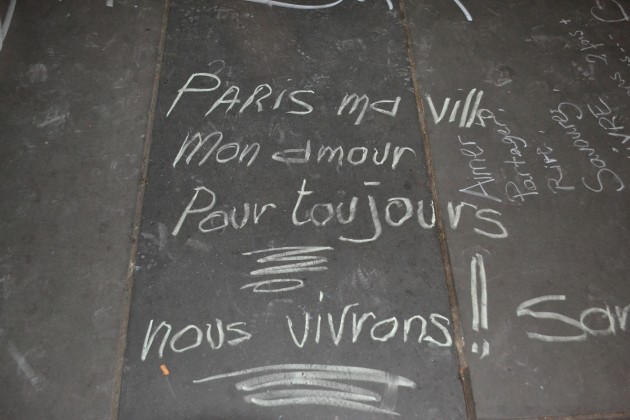 PARIS ma ville
Mon amour
Pour toujours
nous vivrons !!
Aimer
Partager
RIRE
San